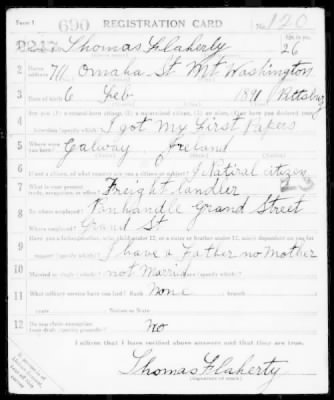 Form 1 690 REGISTRATION CARD No. 120
2217 Thomas Flaherty Age, in yrs. 26
2 Home address 711 Omaha St Mt Washington
3 Date of birth 6 Feb 1891 Pittsburg
4 Are you (1) a natural-born citizen, (2) a naturalized citizen, (3) an alien, (4) or have you declared your
intention (specify which)? I got My First Papers
5 Where were you born? Galway Ireland
6 If not a citizen, of what country are you a citizen or subject? Natiral citizen
7 What is your present trade, occupation, or office? Freight handler 23
8 By whom employed? Panhandle Grand Street
Where employed? Grand St
9 Have you a father, mother, wife, child under 12, or a sister or brother under 12, solely dependent on you for
support (specify which)? I have a Father no Mother
10 Married or single (which)? not Married Race (specify which)?
11 What military service have you had? Rank None ; branch
years ; Nation or State
12 Do you claim exemption from draft (specify grounds)? No
I affirm that I have verified above answers and that they are true.
Thomas Flaherty
(Signature or mark)